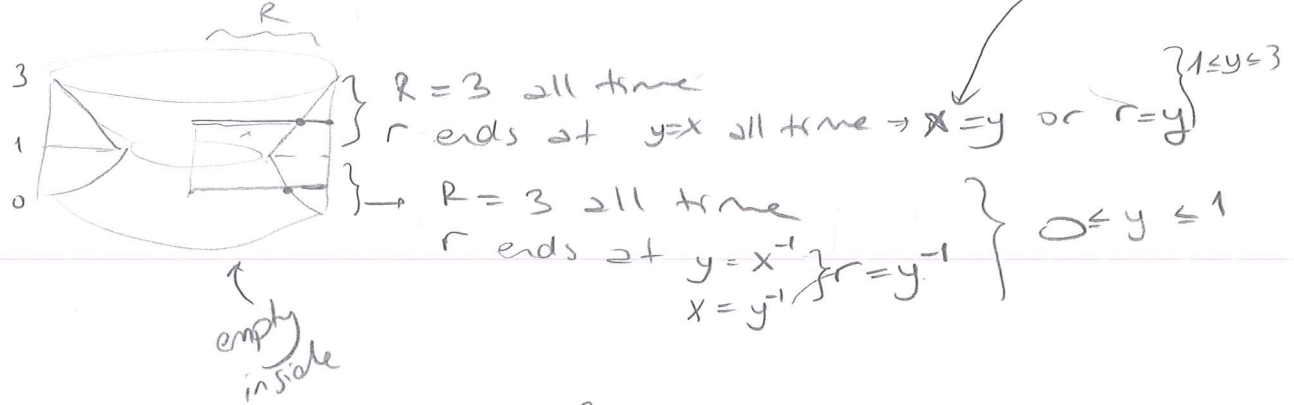 R
3
1
0
} R = 3 all time
r ends at y=x all time → x=y or r=y } 1≤y≤3
}→ R = 3 all time
r ends at y = x⁻¹
x = y⁻¹ } r = y⁻¹ } 0 ≤ y ≤ 1
empty
inside